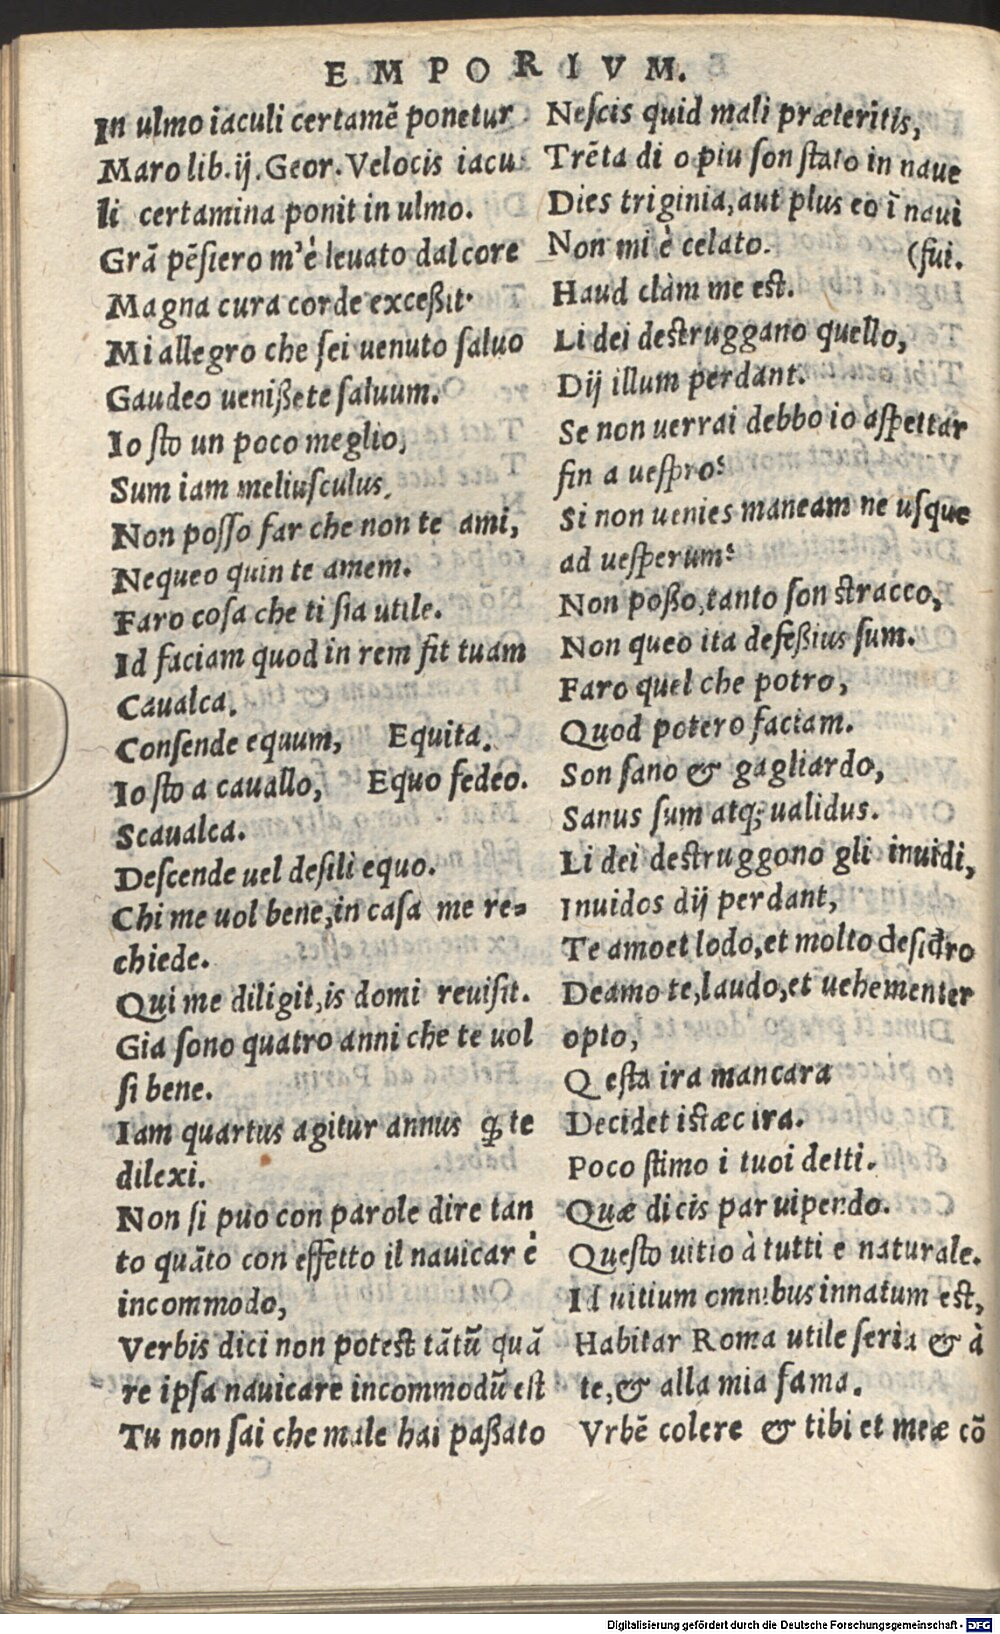 EMPORIVM.
In ulmo iaculi certamē ponetur
Maro lib. ij. Geor. Velocis iacu
li certamina ponit in ulmo.
Grā pēſiero m'è leuato dal core
Magna cura corde exceßit.
Mi allegro che ſei uenuto ſaluo
Gaudeo ueniße te ſaluum.
Io ſto un poco meglio,
Sum iam meliuſculus.
Non poſſo far che non te ami,
Nequeo quin te amem.
Faro coſa che ti ſia utile.
Id faciam quod in rem ſit tuam
Caualca.
Conſende equum, Equita.
Io ſto a cauallo, Equo ſedeo.
Scaualca.
Deſcende uel deſili equo.
Chi me uol bene, in caſa me re-
chiede.
Qui me diligit, is domi reuiſit.
Gia ſono quatro anni che te uol
ſi bene.
Iam quartus agitur annus ꝙ te
dilexi.
Non ſi puo con parole dire tan
to quāto con effetto il nauicar è
incommodo,
Verbis dici non poteſt tātū quā
re ipſa nauicare incommodū eſt
Tu non ſai che male hai paßato
Neſcis quid mali præteritis,
Trēta di o piu ſon ſtato in naue
Dies triginia, aut plus eo ī naui
Non mi è celato. (fui.
Haud clàm me eſt.
Li dei deſtruggano quello,
Dij illum perdant.
Se non uerrai debbo io aſpettar
fin a ueſpro?
Si non uenies maneam ne uſque
ad ueſperum?
Non poßo, tanto ſon ſtracco,
Non queo ita defeßius ſum.
Faro quel che potro,
Quod potero faciam.
Son ſano & gagliardo,
Sanus ſum atq; ualidus.
Li dei deſtruggono gli inuidi,
Inuidos dij perdant,
Te amo et lodo, et molto deſidro
Deamo te, laudo, et uehementer
opto,
Q eſta ira mancara
Decidet iſtæc ira.
Poco ſtimo i tuoi detti.
Quæ dicis par uipendo.
Queſto uitio à tutti e naturale.
Id uitium omnibus innatum eſt,
Habitar Roma utile ſeria & à
te, & alla mia fama.
Vrbē colere & tibi et meæ cō
Digitalisierung gefördert durch die Deutsche Forschungsgemeinschaft - DFG